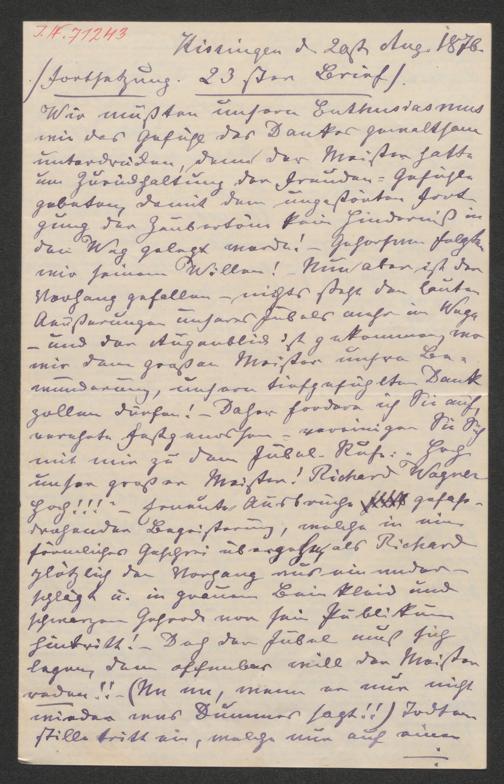 I.N. 71243
Kissingen d. 29st. Aug. 1876.
/:Fortsetzung. 23ster Brief/.
Wir mußten unsern Enthusiasmus
wie das Gefühl des Dankes gewaltsam
unterdrücken, denn der Meister hatte
um Zurückhaltung der Freuden-Gefühle
gebeten, damit dem ungestörten Fort-
gung der Zaubertöne kein Hinderniß in
den Weg gelegt werde! – Gehorsam folgten
wir seinem Willen! Nun aber ist der
Vorhang gefallen – nichts steht den lauten
Äußerungen unseres Jubels mehr im Wege
– und der Augenblick ist gekommen, wo
wir dem großen Meister unsre Be-
wunderung, unsern tiefgefühlten Dank
zollen dürfen! – Daher fordere ich Sie auf,
verehrte Festgenossen – vereinigen Sie Sich
mit mir zu dem Jubel-Rufe: „Hoch
unser großer Meister! Richard Wagner
hoch!!!“ – Erneute Ausbrüche gefahr-
drohender Begeisterung, welche in ein
förmliches Geschrei übergeht, als Richard
plötzlich den Vorhang aus ein ander
schlägt u. in grauem Beinkleid und
schwarzem Gehrock vor sein Publikum
hintritt! – Doch der Jubel muß sich
legen, denn offenbar will der Meister
reden!! – (Nu nu, wenn er nur nicht
wieder was Dummes sagt!!) Todten
stille tritt ein, welche nur auf einen